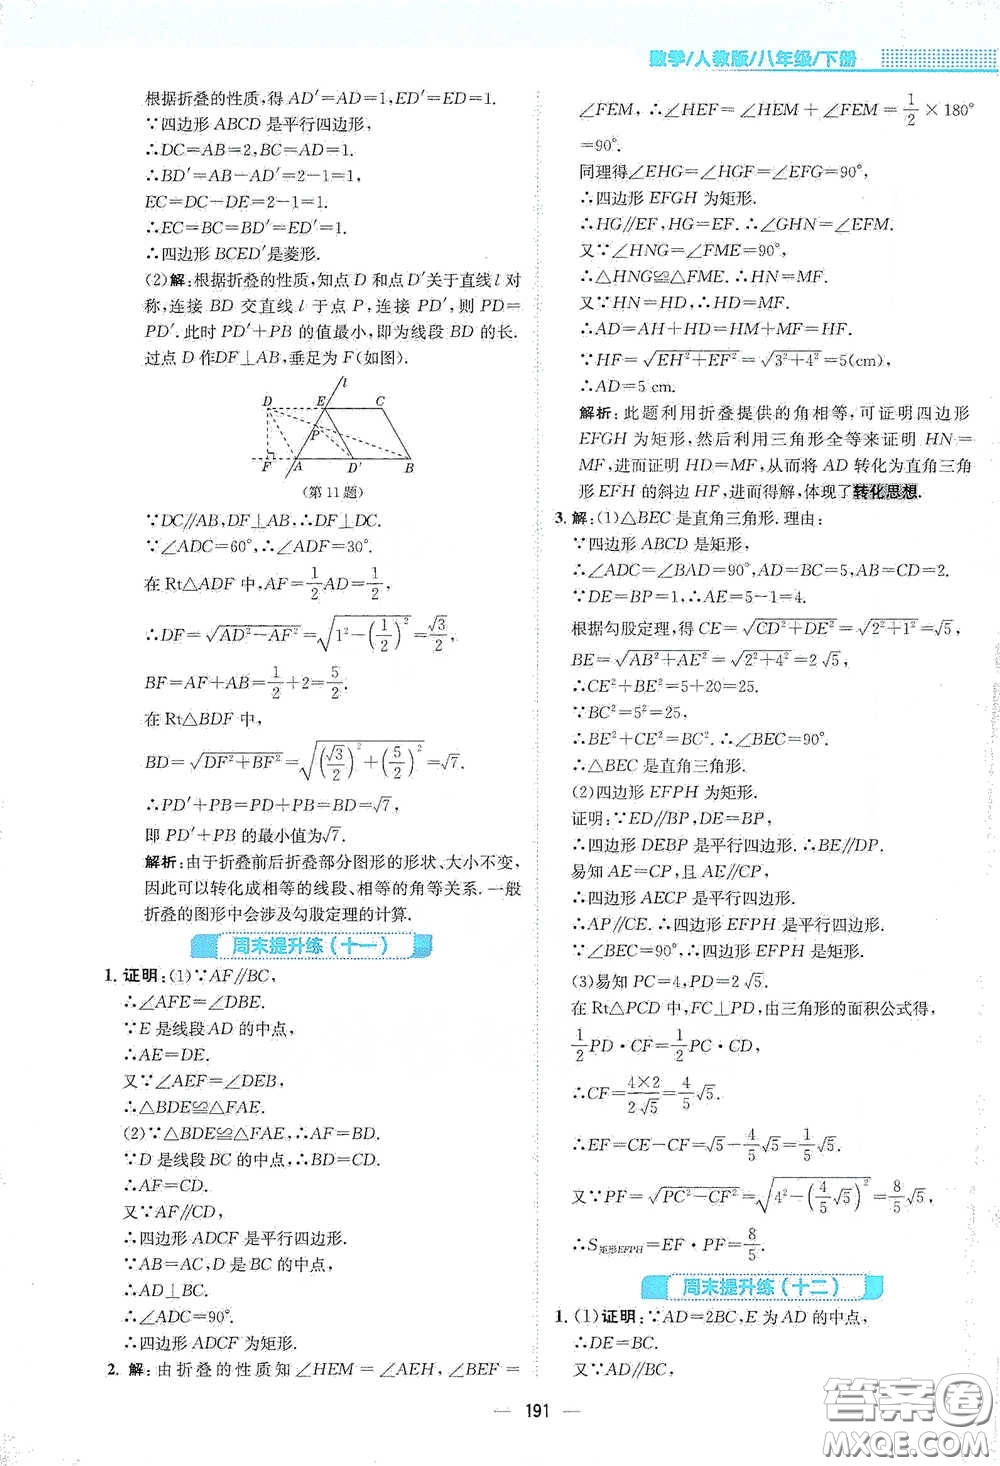 数学/人教版/八年级/下册
根据折叠的性质,得 AD′=AD=1,ED′=ED=1.
∵四边形 ABCD 是平行四边形,
∴DC=AB=2,BC=AD=1.
∴BD′=AB−AD′=2−1=1,
EC=DC−DE=2−1=1.
∴EC=BC=BD′=ED′=1.
∴四边形 BCED′是菱形.
(2)解:根据折叠的性质,知点 D 和点 D′关于直线 l 对
称,连接 BD 交直线 l 于点 P,连接 PD′,则 PD=
PD′. 此时 PD′+PB 的值最小,即为线段 BD 的长.
过点 D 作DF⊥AB,垂足为 F(如图).
l
D E C
P
F A D′ B
(第 11 题)
∵DC∥AB,DF⊥AB,∴DF⊥DC.
∵∠ADC=60°,∴∠ADF=30°.
在 Rt△ADF 中,AF=1/2AD=1/2,
∴DF=√(AD²−AF²)=√(1²−(1/2)²)=√3/2,
BF=AF+AB=1/2+2=5/2.
在 Rt△BDF 中,
BD=√(DF²+BF²)=√((√3/2)²+(5/2)²)=√7.
∴PD′+PB=PD+PB=BD=√7,
即 PD′+PB 的最小值为√7.
解析:由于折叠前后折叠部分图形的形状、大小不变,
因此可以转化成相等的线段、相等的角等关系. 一般
折叠的图形中会涉及勾股定理的计算.
周末提升练(十一)
1. 证明:(1)∵AF∥BC,
∴∠AFE=∠DBE.
∵E 是线段 AD 的中点,
∴AE=DE.
又∵∠AEF=∠DEB,
∴△BDE≌△FAE.
(2)∵△BDE≌△FAE,∴AF=BD.
∵D 是线段 BC 的中点,∴BD=CD.
∴AF=CD.
又∵AF∥CD,
∴四边形 ADCF 是平行四边形.
∵AB=AC,D 是 BC 的中点,
∴AD⊥BC.
∴∠ADC=90°.
∴四边形 ADCF 为矩形.
2. 解:由折叠的性质知∠HEM=∠AEH,∠BEF=
∠FEM,∴∠HEF=∠HEM+∠FEM=1/2×180°
=90°.
同理得∠EHG=∠HGF=∠EFG=90°,
∴四边形 EFGH 为矩形.
∴HG∥EF,HG=EF. ∴∠GHN=∠EFM.
又∵∠HNG=∠FME=90°,
∴△HNG≌△FME. ∴HN=MF.
又∵HN=HD,∴HD=MF.
∴AD=AH+HD=HM+MF=HF.
∵HF=√(EH²+EF²)=√(3²+4²)=5(cm),
∴AD=5 cm.
解析:此题利用折叠提供的角相等,可证明四边形
EFGH 为矩形,然后利用三角形全等来证明 HN=
MF,进而证明 HD=MF,从而将 AD 转化为直角三角
形 EFH 的斜边 HF,进而得解,体现了转化思想.
3. 解:(1)△BEC 是直角三角形. 理由:
∵四边形 ABCD 是矩形,
∴∠ADC=∠BAD=90°,AD=BC=5,AB=CD=2.
∵DE=BP=1,∴AE=5−1=4.
根据勾股定理,得 CE=√(CD²+DE²)=√(2²+1²)=√5,
BE=√(AB²+AE²)=√(2²+4²)=2√5.
∴CE²+BE²=5+20=25.
∵BC²=5²=25,
∴BE²+CE²=BC². ∴∠BEC=90°.
∴△BEC 是直角三角形.
(2)四边形 EFPH 为矩形.
证明:∵ED∥BP,DE=BP,
∴四边形 DEBP 是平行四边形. ∴BE∥DP.
易知 AE=CP,且 AE∥CP,
∴四边形 AECP 是平行四边形.
∴AP∥CE. ∴四边形 EFPH 是平行四边形.
∵∠BEC=90°,∴四边形 EFPH 是矩形.
(3)易知 PC=4,PD=2√5.
在 Rt△PCD 中,FC⊥PD,由三角形的面积公式得,
1/2PD·CF=1/2PC·CD,
∴CF=(4×2)/(2√5)=4/5√5.
∴EF=CE−CF=√5−4/5√5=1/5√5.
又∵PF=√(PC²−CF²)=√(4²−(4/5√5)²)=8/5√5,
∴S矩形EFPH=EF·PF=8/5.
周末提升练(十二)
1. (1)证明:∵AD=2BC,E 为 AD 的中点,
∴DE=BC.
又∵AD∥BC,
191
答案卷
MXQE.COM